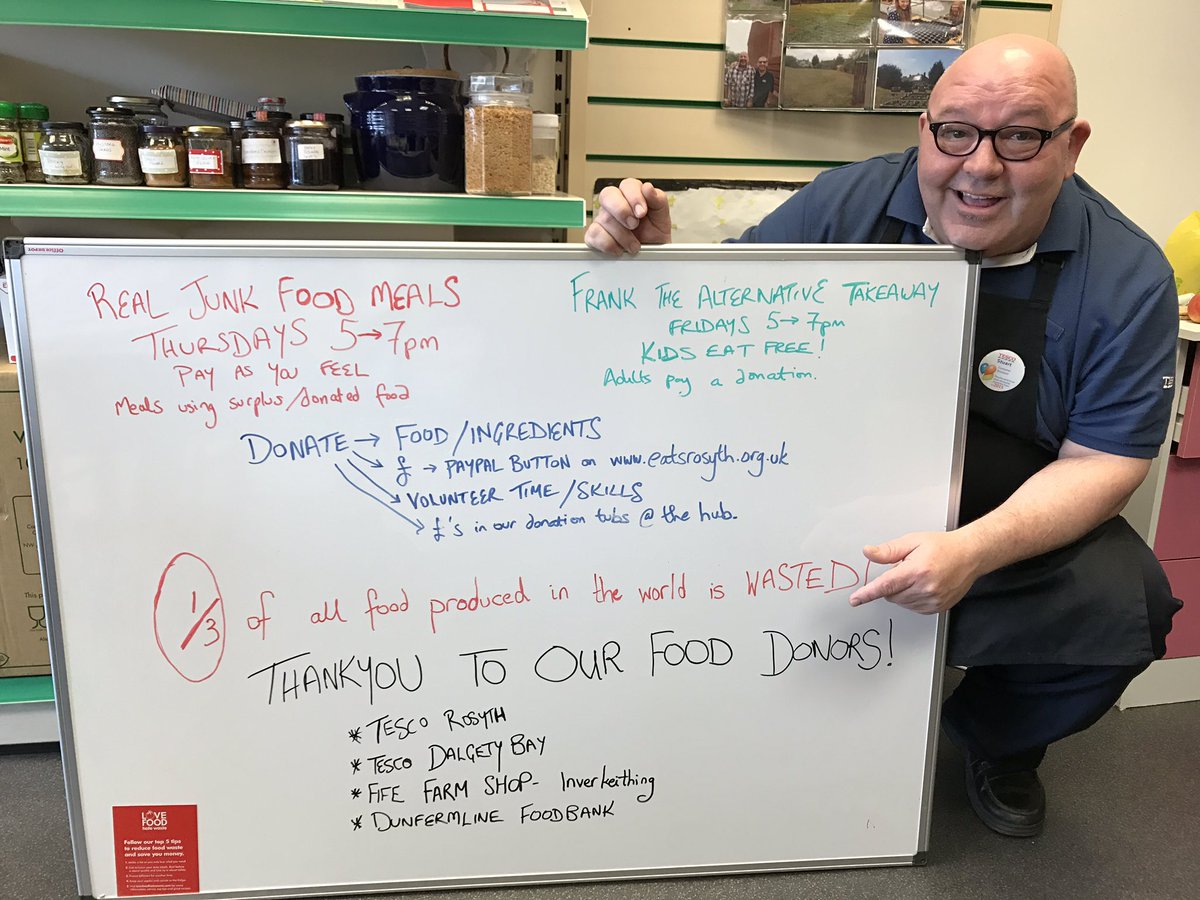 OFFICE DEPOT
REAL JUNK FOOD MEALS
THURSDAYS 5→7pm
PAY AS YOU FEEL
Meals using surplus/donated food
FRANK THE ALTERNATIVE TAKEAWAY
FRIDAYS 5→7pm
KIDS EAT FREE!
Adults pay a donation.
DONATE → FOOD/INGREDIENTS
£ → PAYPAL BUTTON on www.eatsrosyth.org.uk
VOLUNTEER TIME/SKILLS
£'s in our donation tubs @ the hub.
1/3 of all food produced in the world is WASTED!
THANKYOU TO OUR FOOD DONORS!
* TESCO ROSYTH
* TESCO DALGETY BAY
* FIFE FARM SHOP- Inverkeithing
* DUNFERMLINE FOODBANK
LOVE
FOOD
hate waste
Follow our top 5 tips
to reduce food waste
and save you money.
TESCO
Stuart
Mint